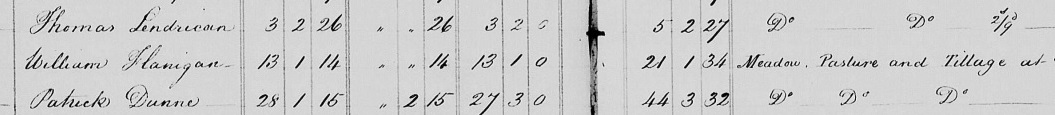 Thomas Lendrican 3 2 26 " " 26 3 2 0 5 2 27 Do Do 2s/9d
William Flanigan 13 1 14 " " 14 13 1 0 21 1 34 Meadow, Pasture and Tillage at
Patrick Dunne 28 1 15 " 2 15 27 3 0 44 3 32 Do Do Do